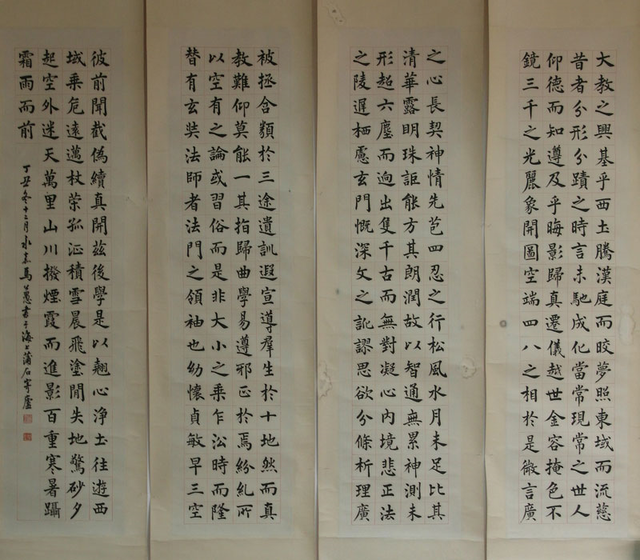 大教之興基乎西土騰漢庭而皎夢照東域而流慈
昔者分形分蹟之時言未馳成化當常現常之世人
仰德而知遵及乎晦影歸真遷儀越世金容掩色不
鏡三千之光麗象開圖空端四八之相於是微言廣
之心長契神情先苞四忍之行松風水月未足比其
清華露明珠詎能方其朗潤故以智通無累神測未
形超六塵而迥出隻千古而無對凝心內境悲正法
之陵遲栖慮玄門慨深文之訛謬思欲分條析理廣
被拯含類於三途遺訓遐宣導羣生於十地然而真
教難仰莫能一其指歸曲學易遵邪正於焉紛糺所
以空有之論或習俗而是非大小之乘乍沿時而隆
替有玄奘法師者法門之領袖也幼懷貞敏早三空
彼前聞截偽續真開茲後學是以翹心淨土往遊西
域乘危遠邁杖策孤征積雪晨飛塗閒失地驚砂夕
起空外迷天萬里山川撥煙霞而進影百重寒暑躡
霜雨而前
丁丑冬十二月永嘉馬公愚書于海上蒲石寄廬